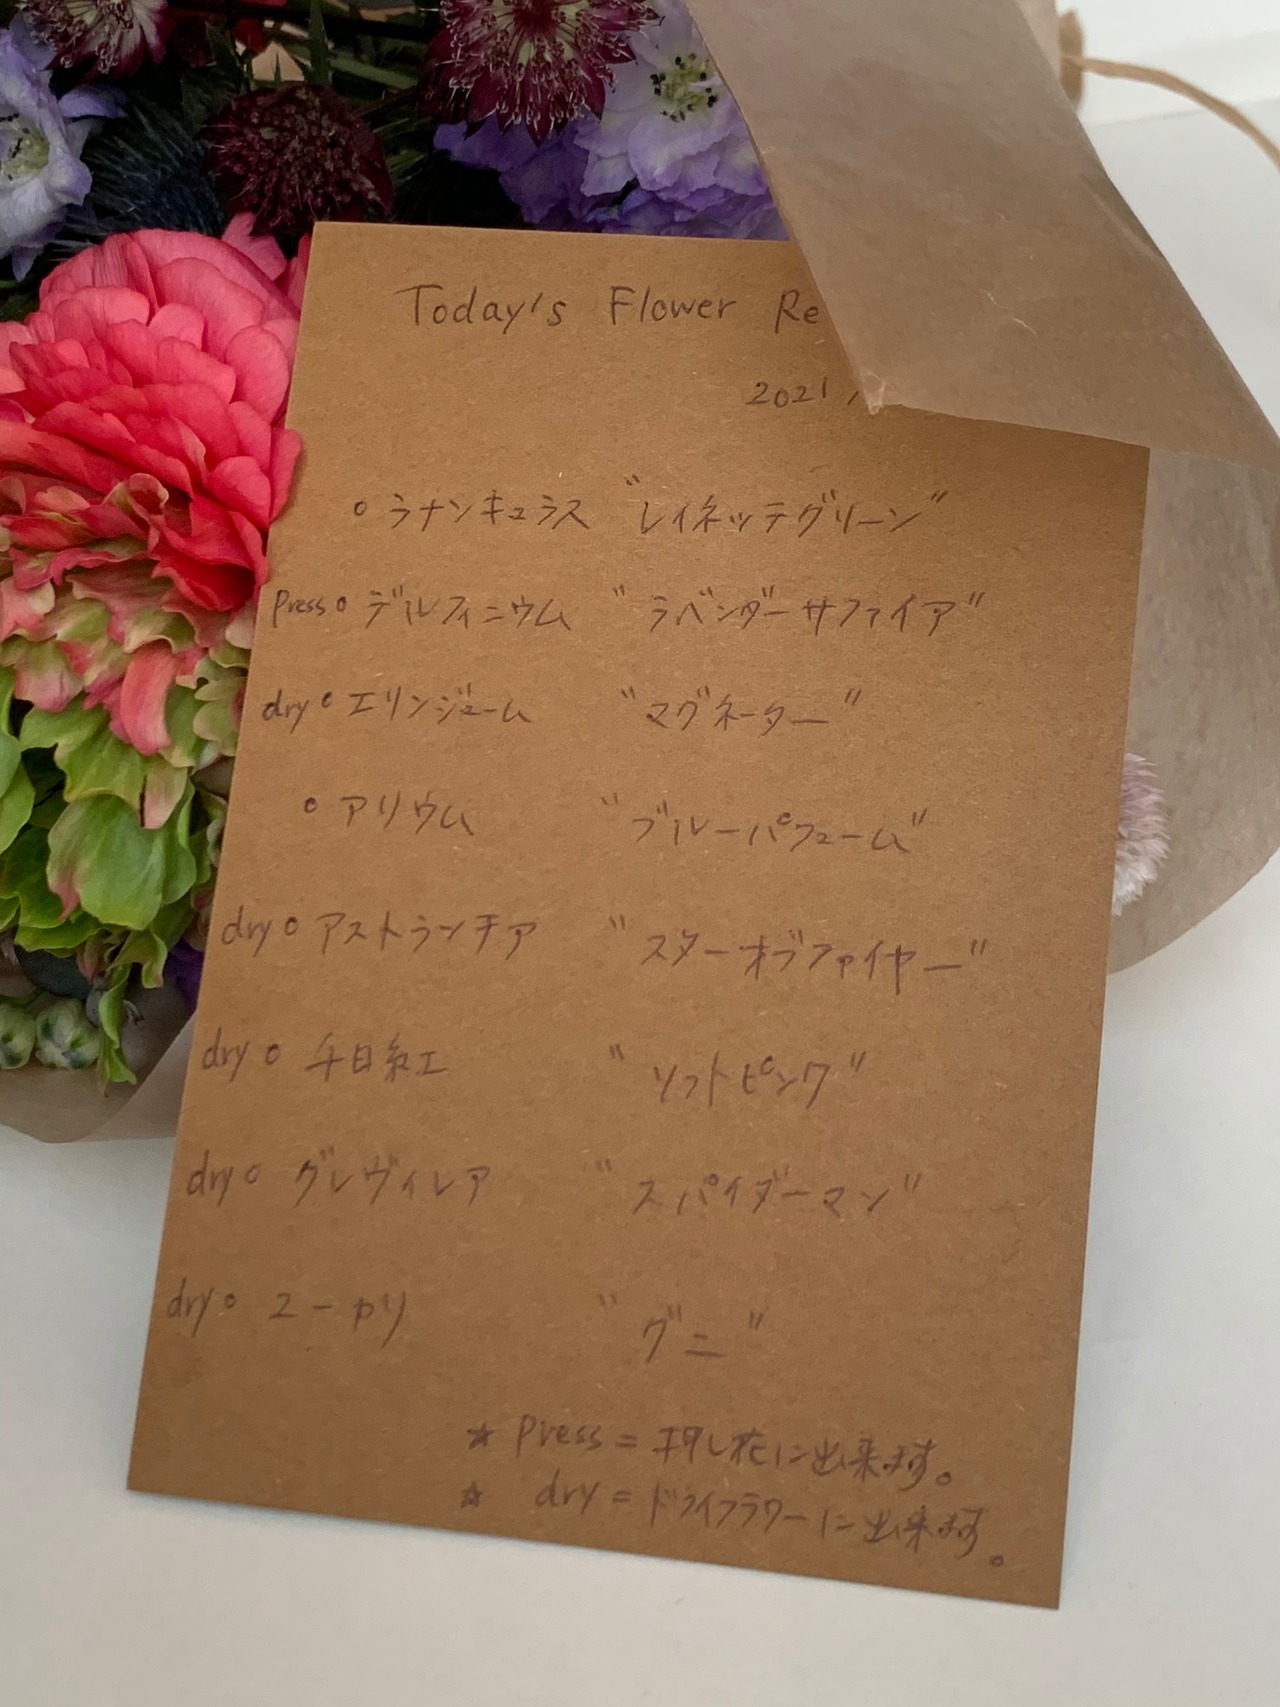 Today's Flower Re
2021 /
○ ラナンキュラス "レイネッテグリーン"
Press○ デルフィニウム "ラベンダーサファイア"
dry○ エリンジューム "マグネーター"
○ アリウム "ブルーパフューム"
dry○ アストランチア "スターオブファイヤー"
dry○ 千日紅 "ソフトピンク"
dry○ グレヴィレア "スパイダーマン"
dry○ ユーカリ "グニ"
☆ Press = 押し花に出来ます。
☆ dry = ドライフラワーに出来ます。